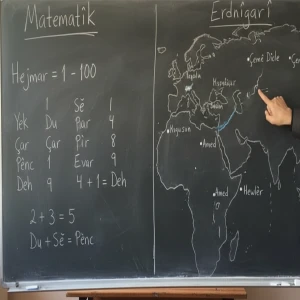 Matematîk
Hejmar = 1 - 100
1 Sê 1
Yek Du Par 4
Çar Çar Pir 8
Pênc 1 Evar 9
Deh 9 4 + 1 = Deh
2 + 3 = 5
Du + Sê = Pênc
Erdnîgarî
Çemê Dîcle
Amed
Amed
Hewlêr